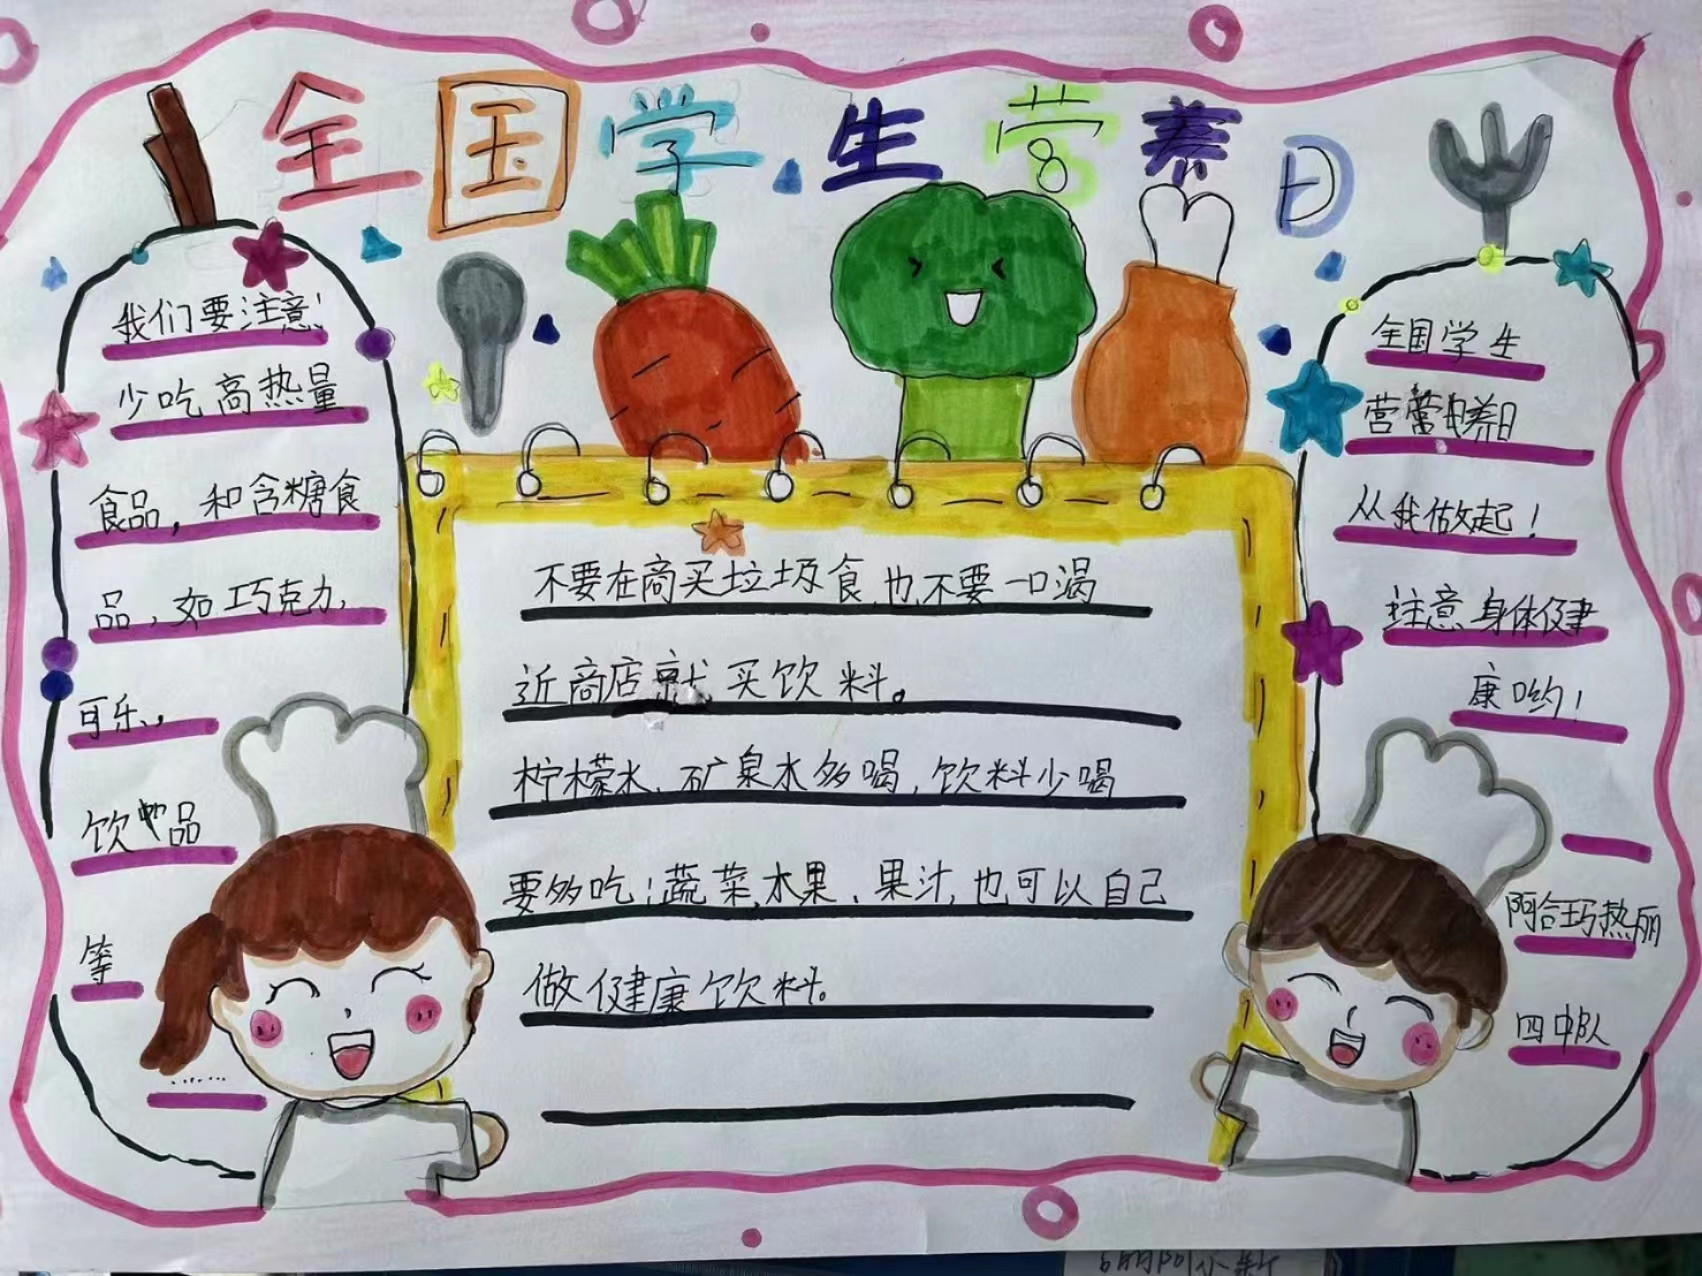 全国学生营养日
我们要注意!
少吃高热量
食品，和含糖食
品，如巧克力，
可乐、
饮品
等
……
不要在商买垃圾食，也不要一口渴
近商店就买饮料。
柠檬水、矿泉水多喝，饮料少喝
要多吃!蔬菜，水果、果汁，也可以自己
做健康饮料。
全国学生
营养日
从我做起!
注意身体健
康哟!
阿合巧热丽
四中队